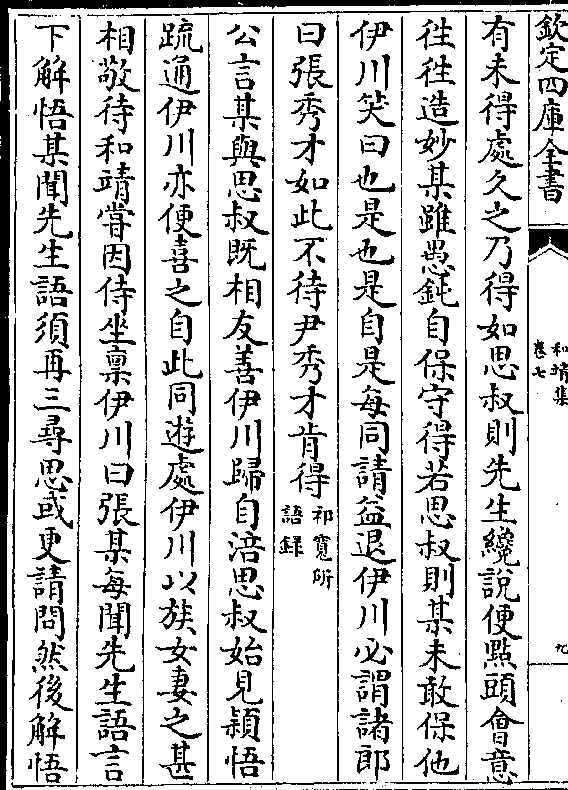 欽定四庫全書
和靖集
卷七
九
有未得處久之乃得如思叔則先生纔說便點頭會意
往往造妙某雖愚鈍自保守得若思叔則某未敢保他
伊川笑曰也是也是自是每同請益退伊川必謂諸郎
曰張秀才如此不待尹秀才肯得祁寛所語録
公言某與思叔既相友善伊川歸自涪思叔始見穎悟
疏通伊川亦便喜之自此同遊處伊川以族女妻之甚
相敬待和靖嘗因侍坐稟伊川曰張某每聞先生語言
下解悟某聞先生語須再三尋思或更請問然後解悟